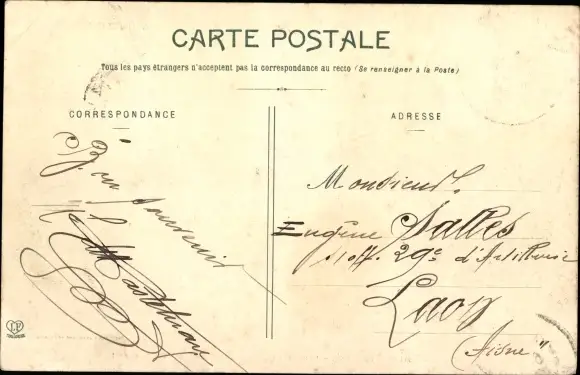 CARTE POSTALE
Tous les pays étrangers n'acceptent pas la correspondance au recto (Se renseigner à la Poste)
CORRESPONDANCE
ADRESSE
souvenir
Monsieur
Eugène Salles
s/off. 29e d'Artillerie
Laon
Aisne"